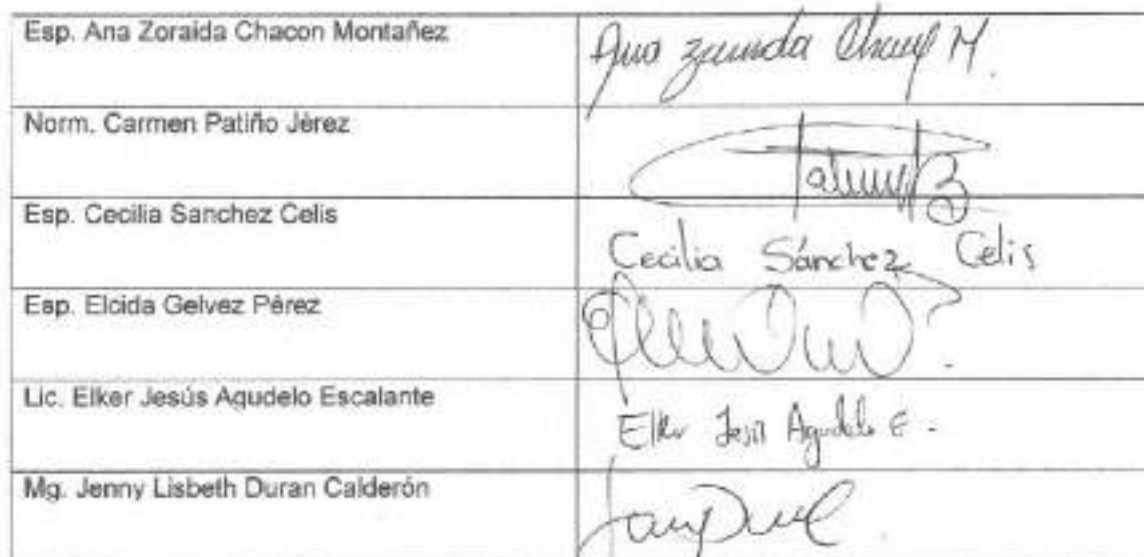 Esp. Ana Zoraida Chacon Montañez
Ana Chacon M.
Norm. Carmen Patiño Jèrez
Esp. Cecilia Sanchez Celis
Cecilia Sánchez Celis
Esp. Elcida Gelvez Pérez
Lic. Elker Jesús Agudelo Escalante
Elker Jesús Agudelo E.
Mg. Jenny Lisbeth Duran Calderón